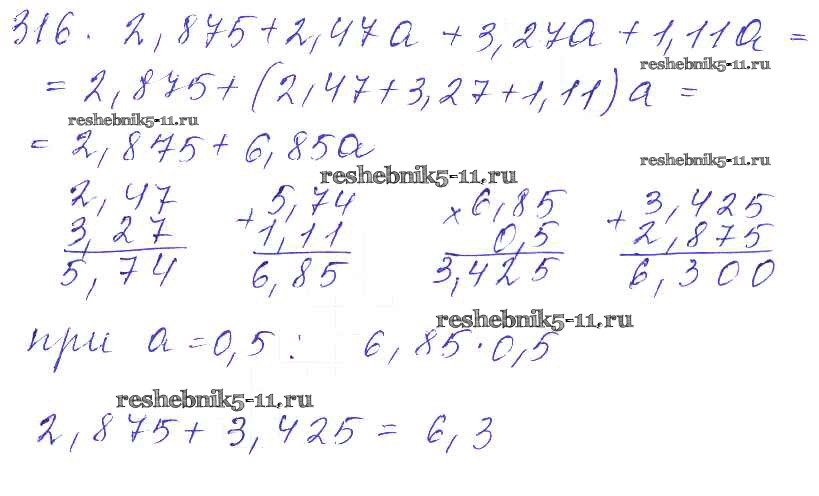 316. 2,875+2,47a+3,27a+1,11a=
reshebnik5-11.ru
=2,875+(2,47+3,27+1,11)a=
reshebnik5-11.ru
=2,875+6,85a
reshebnik5-11.ru
reshebnik5-11.ru
2,47 5,74 6,85 3,425
3,27 + 1,11 × 0,5 + 2,875
5,74 6,85 3,425 6,300
reshebnik5-11.ru
при a=0,5: 6,85·0,5
reshebnik5-11.ru
2,875+3,425=6,3